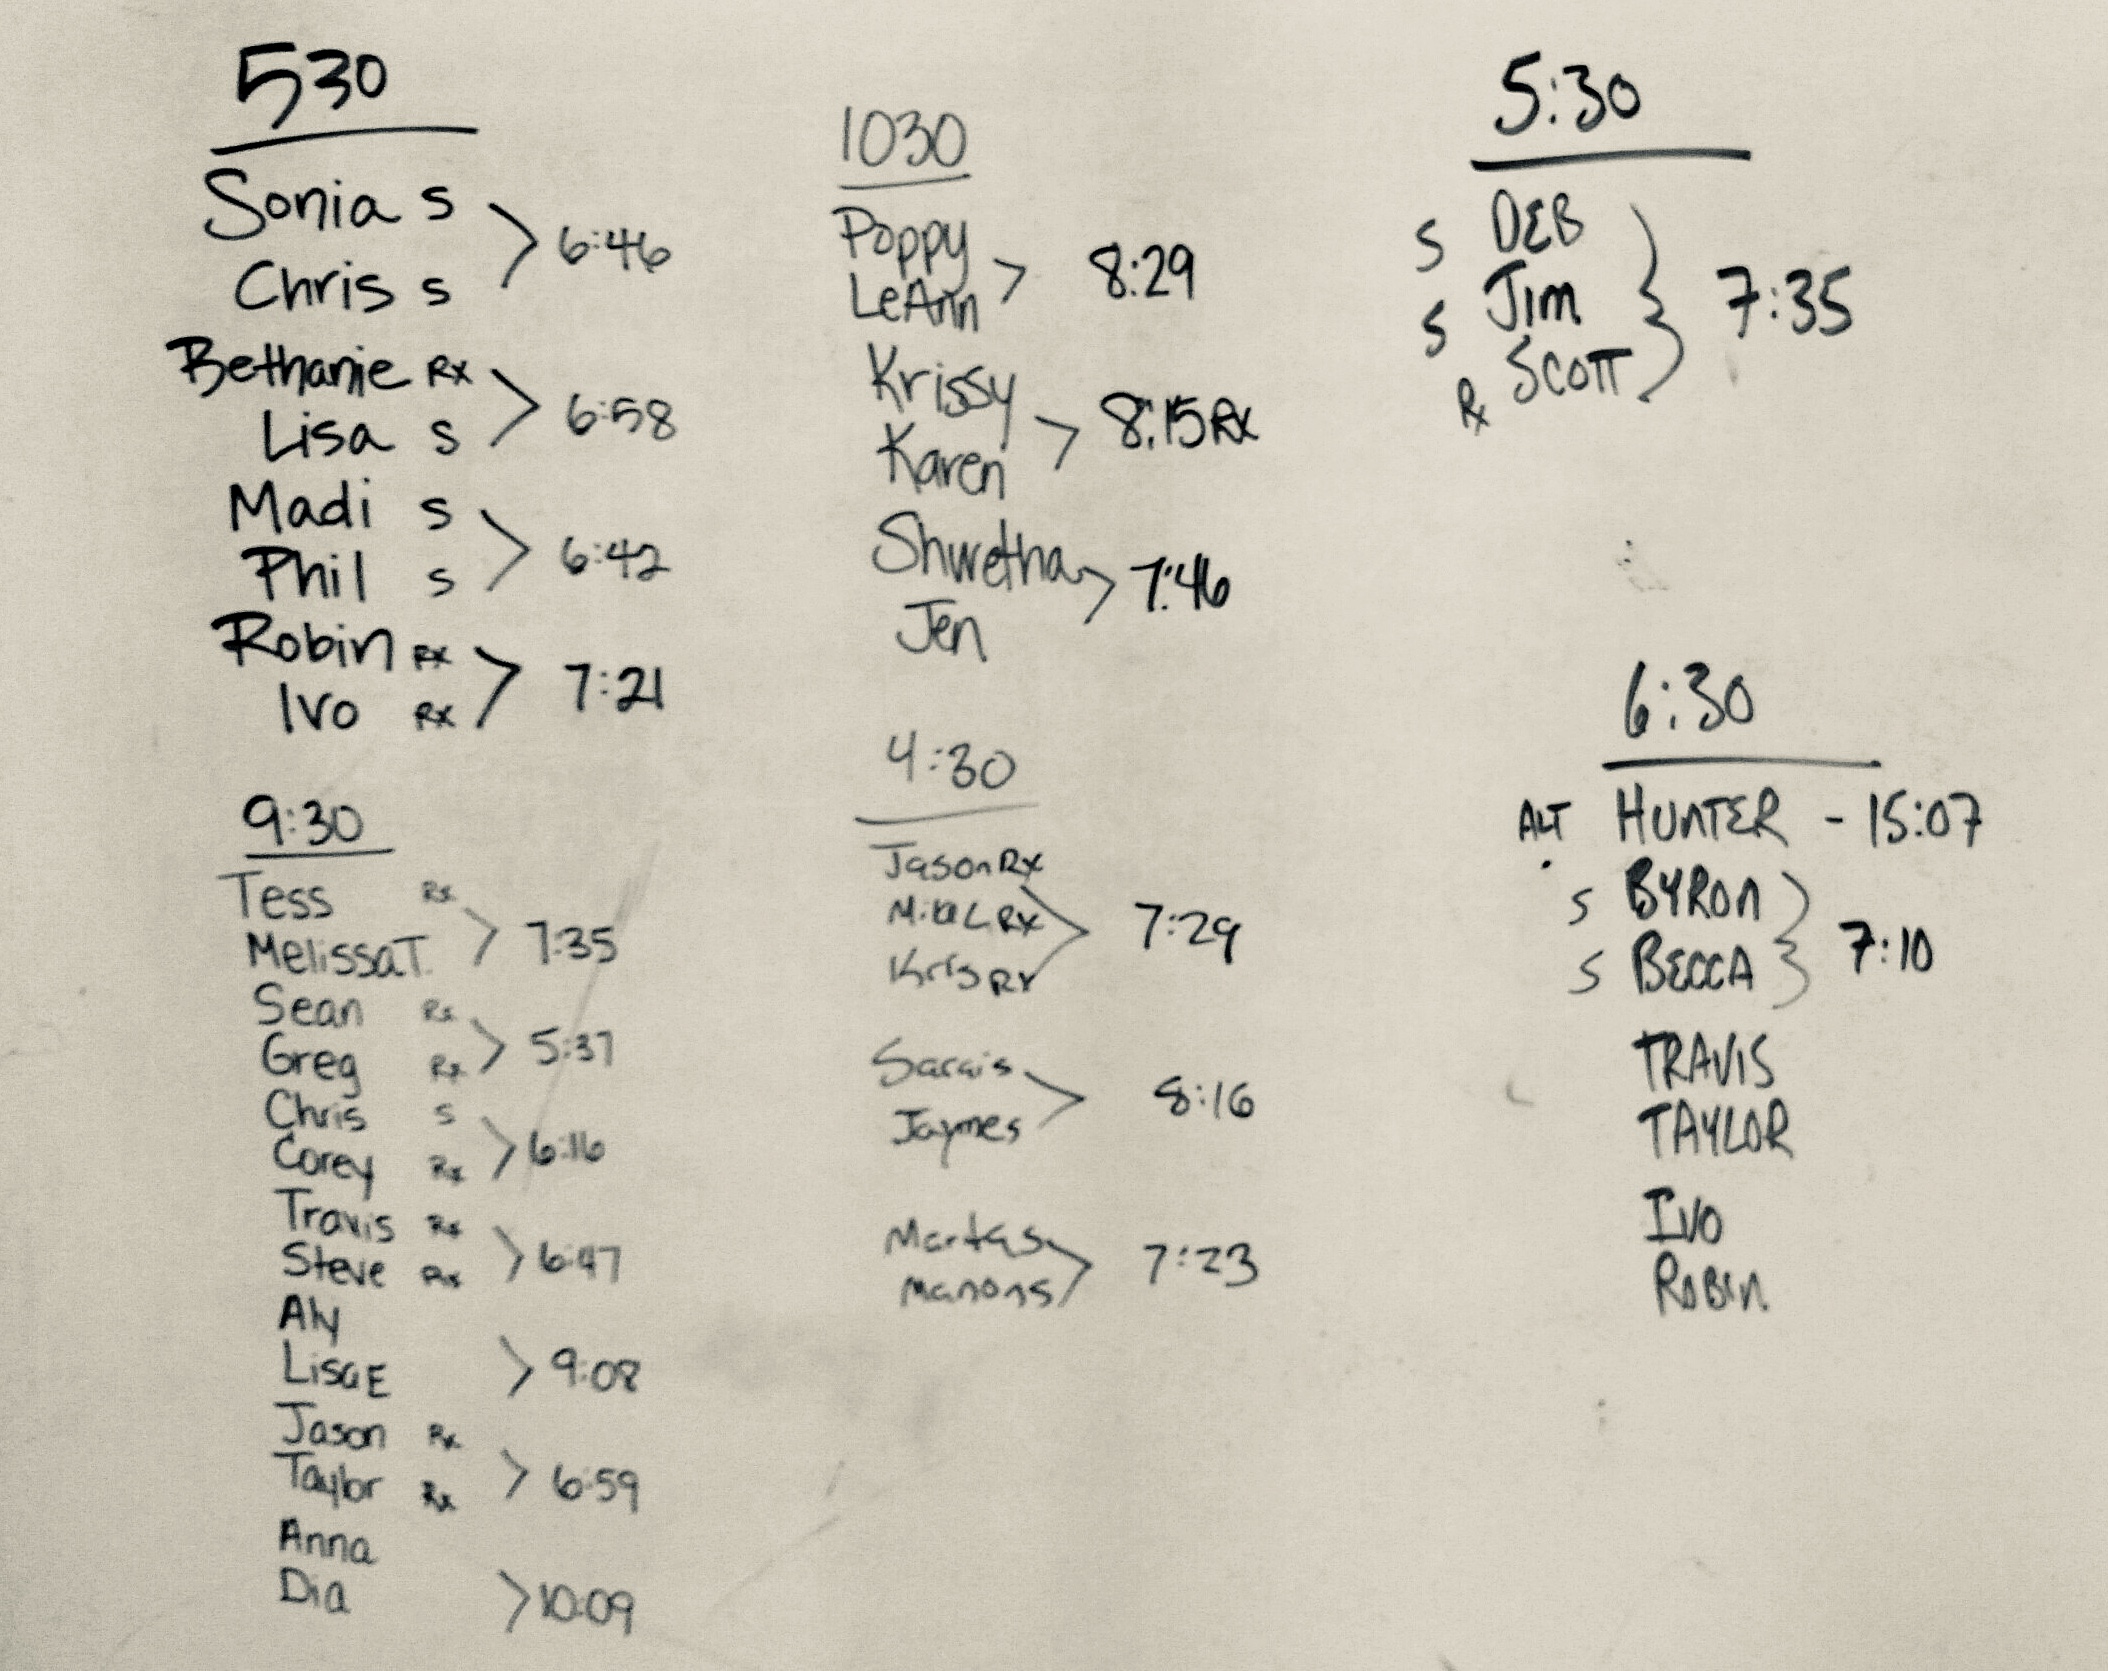 530
Sonia S
Chris S > 6:46
Bethanie Rx
Lisa S > 6:58
Madi S
Phil S > 6:42
Robin Rx
Ivo Rx > 7:21
9:30
Tess Rx
Melissa T. > 7:35
Sean Rx
Greg Rx > 5:37
Chris S
Corey Rx > 6:16
Travis Rx
Steve Rx > 6:47
Aly
Lisa E > 9:08
Jason Rx
Taylor Rx > 6:59
Anna
Dia > 10:09
1030
Poppy
LeAnn > 8:29
Krissy
Karen > 8:15 Rx
Shwetha
Jen > 7:46
4:30
Jason Rx
Mike L Rx > 7:29
Kris Rx
Sara s
Jayme s > 8:16
Marta s
Manon s > 7:23
5:30
S DEB
S Jim } 7:35
Rx SCOTT
6:30
ALT HUNTER - 15:07
S BYRON
S BECCA } 7:10
TRAVIS
TAYLOR
IVO
ROBIN